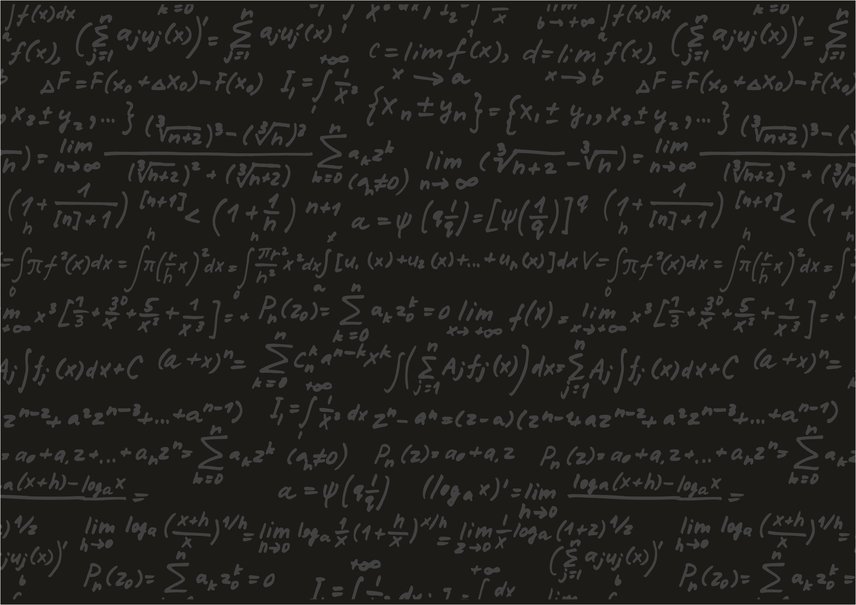 ∫f(x)dx k=0 ∫ b→+∞ ∫f(x)dx k=0
f(x), (∑_{j=1}^{n} a_j u_j(x))' = ∑_{j=1}^{n} a_j u_j'(x) c = lim_{x→a} f(x), d = lim_{x→b} f(x), (∑_{j=1}^{n} a_j u_j(x))' = ∑
ΔF = F(x₀ + Δx₀) − F(x₀) I₁ = ∫^{+∞} 1/x³ ΔF = F(x₀ + Δx₀) − F(x₀)
, x₂ ± y₂, ... } {x_n ± y_n} = {x₁ ± y₁, x₂ ± y₂, ... }
) = lim_{n→∞} ((∛(n+2))³ − (∛n)³) / ((∛(n+2))² + (∛(n+2))) ∑_{k=0}^{n} a_k z^k (a_n≠0) lim_{n→∞} (∛(n+2) − ∛n) = lim_{n→∞} ((∛(n+2))³ − (∛n)) / ((∛(n+2))² + (∛n
(1 + 1/([n]+1))^{[n+1]} < (1 + 1/n)^{n+1} a = ψ(q 1/q) = [ψ(1/q)]^q (1 + 1/([n]+1))^{[n+1]} < (1 +
= ∫₀^h π f²(x)dx = ∫₀^h π(r/h x)² dx = ∫₀^h πr²/h² x² dx ∫_a^x [u₁(x) + u₂(x) + ... + u_n(x)]dx V = ∫₀^h π f²(x)dx = ∫₀^h π(r/h x)² dx =
x³[7/3 + 30/x + 5/x² + 1/x³] = + P_n(z₀) = ∑_{k=0}^{n} a_k z₀^k = 0 lim_{x→+∞} f(x) = lim_{x→+∞} x³[7/3 + 30/x + 5/x² + 1/x³] = +
A_j ∫f_j(x)dx + C (a + x)^n = ∑_{k=0}^{n} C_n^k a^{n−k} x^k ∫(∑_{j=1}^{n} A_j f_j(x))dx = ∑_{j=1}^{n} A_j ∫f_j(x)dx + C (a + x)^n =
z^{n−2} + a²z^{n−3} + ... + a^{n−1}) I₁ = ∫^{+∞} 1/x³ dx z^n − a^n = (z − a)(z^{n−1} + az^{n−2} + a²z^{n−3} + ... + a^{n−1})
= a₀ + a₁z + ... + a_n z^n = ∑_{k=0}^{n} a_k z^k (a_n≠0) P_n(z) = a₀ + a₁z P_n(z) = a₀ + a₁z + ... + a_n z^n = ∑_{k=0}^{n} a_k z^k
a(x+h) − log_a x = a = ψ(q 1/q) (log_a x)' = lim_{h→0} log_a(x+h) − log_a x =
)^{1/2} lim_{h→0} log_a((x+h)/x)^{1/h} = lim_{h→0} log_a 1/x (1 + h/x)^{x/h} = lim_{z→0} 1/x log_a(1+z)^{1/2} lim_{h→0} log_a((x+h)/x)^{1/h} =
u_j(x))' P_n(z₀) = ∑^{n} a_k z₀^k = 0 (∑_{j=1}^{n} a_j u_j(x))' P_n(z₀) = ∑^{n} a_k z₀^k =
b +∞ +∞ ∫ dx b